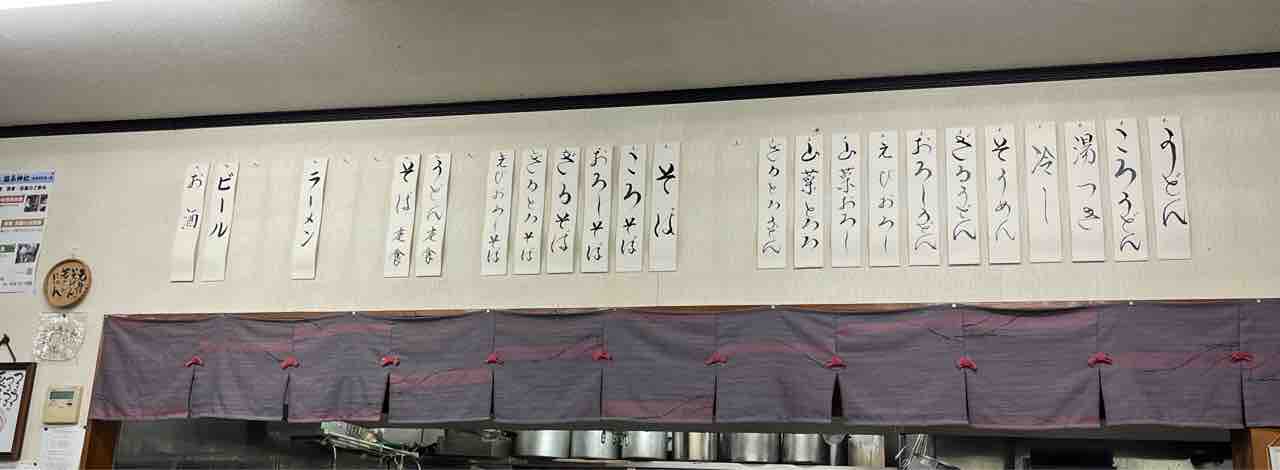 うどん
ころうどん
湯つき
冷し
そうめん
ざるうどん
おろしうどん
えびおろし
山菜おろし
山菜とろろ
ざるとろうどん
そば
ころそば
おろしそば
ざるそば
ざるとろそば
えびおろしそば
うどん定食
そば定食
ラーメン
ビール
お酒